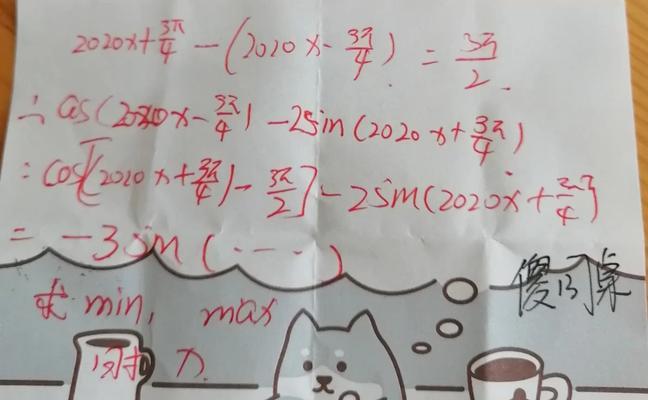 2020x+3π/4-(2020x-3π/4)=3π/2.
∴cos(2020x-3π/4)-2sin(2020x+3π/4)
=cos[(2020x+3π/4)-3π/2]-2sin(2020x+3π/4)
=-3sin(----)
求min, max
傻同桌